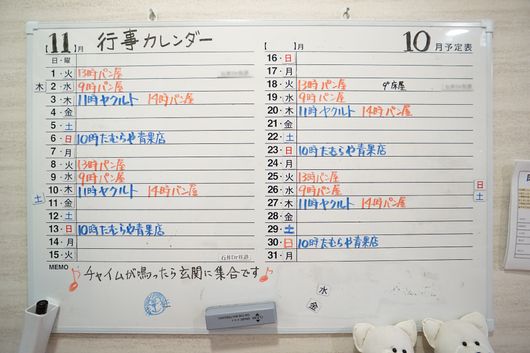 【11】月 行事カレンダー
日・曜
1・火 13時パン屋
木 2・水 9時パン屋
3・木 11時ヤクルト 14時パン屋
4・金
5・土
6・日 10時たむらや青果店
7・月
8・火 13時パン屋
9・水 9時パン屋
土 10・木 11時ヤクルト 14時パン屋
11・金
12・土
13・日 10時たむらや青果店
14・月
15・火
MEMO チャイムが鳴ったら玄関に集合です
【 】 10月予定表
16・日
17・月
18・火 13時パン屋
19・水 9時パン屋
20・木 11時ヤクルト 14時パン屋
21・金
22・土
23・日 10時たむらや青果店
24・月
25・火 13時パン屋
26・水 9時パン屋
27・木 11時ヤクルト 14時パン屋
28・金
29・土
30・日 10時たむらや青果店
31・月
日
土
水
金